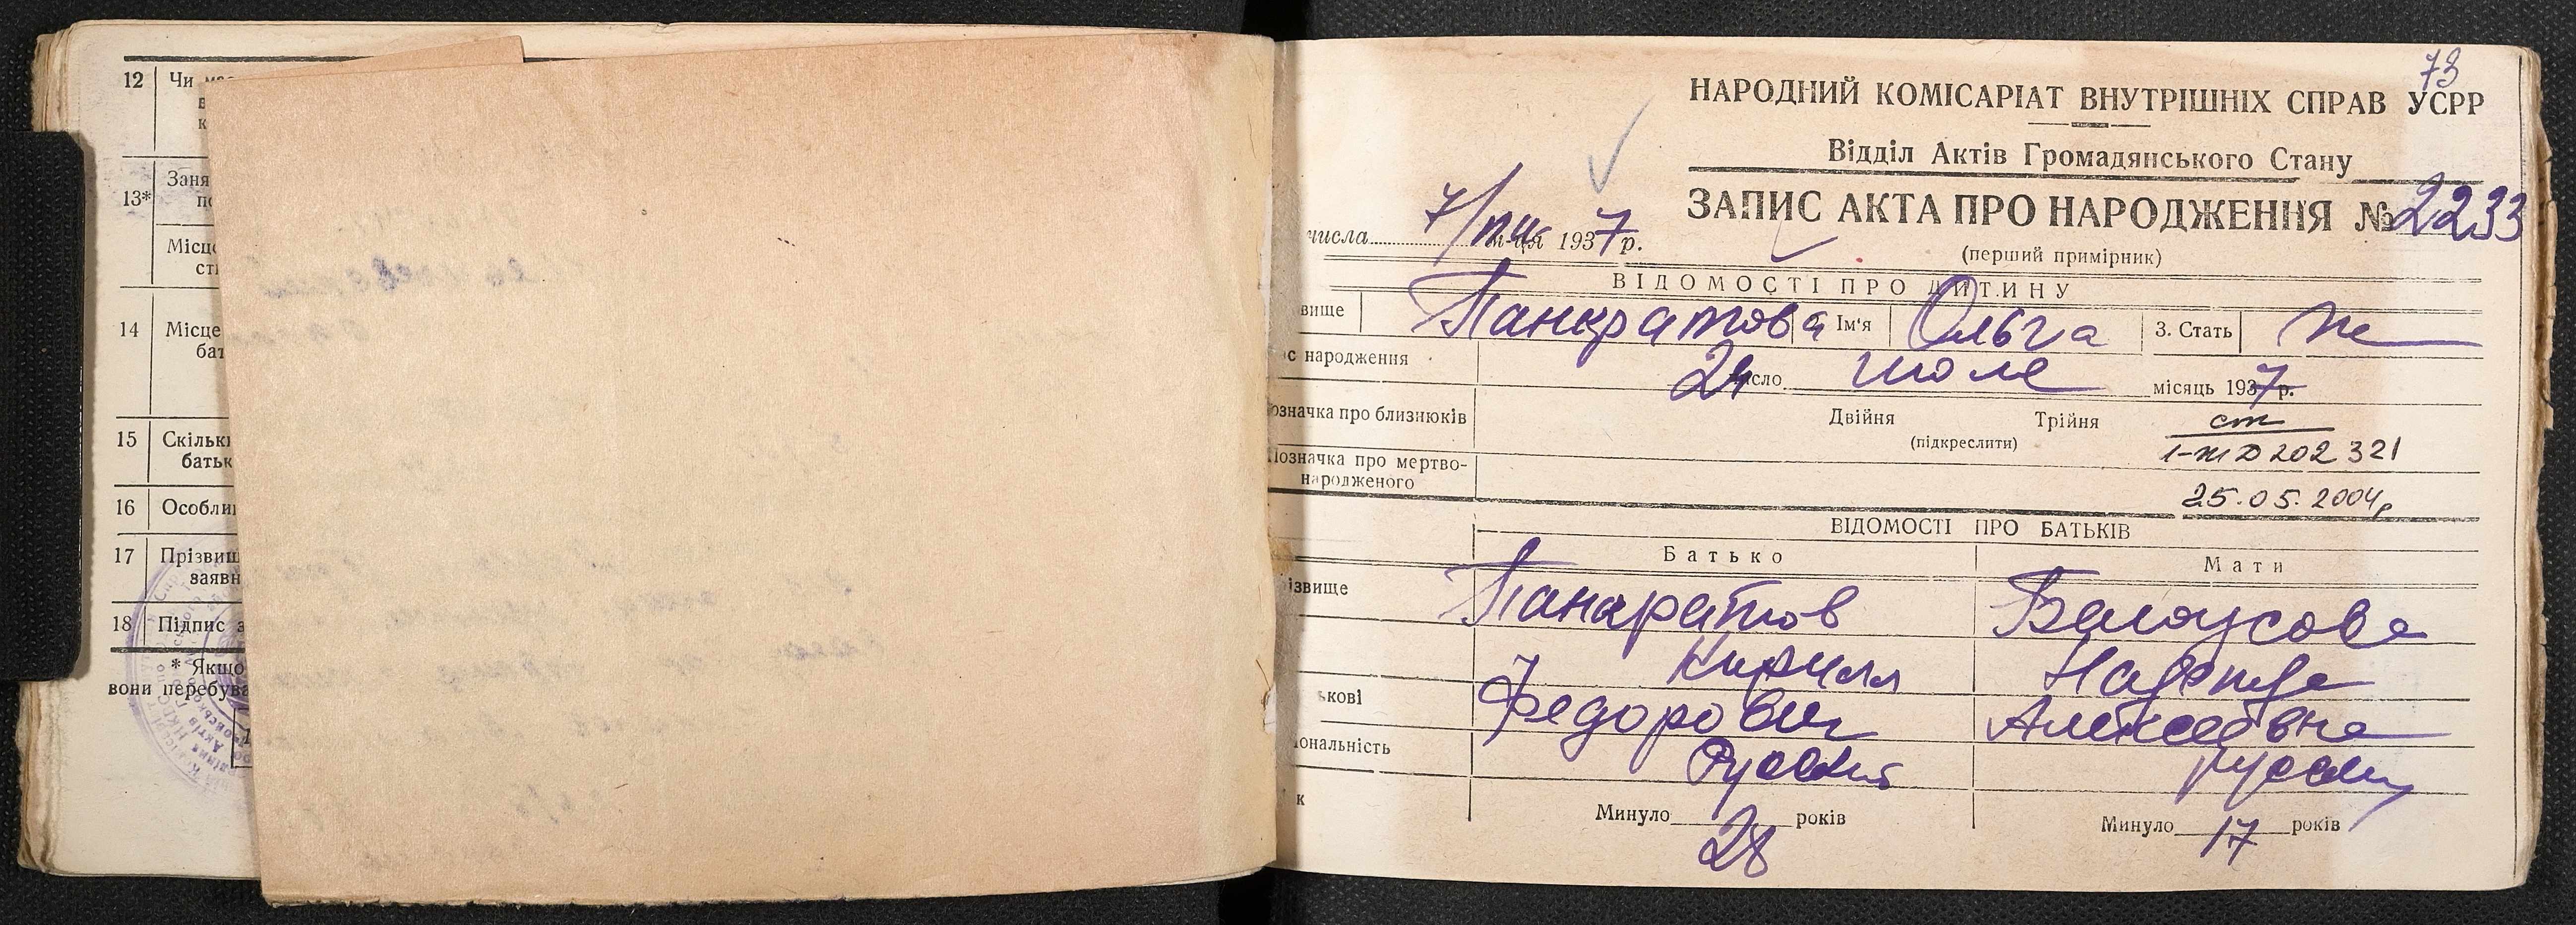 12 Чи
13* Заня
Місце
14 Місце
бат
15 Скільки
батьк
16 Особли
17 Прізвищ
заявн
18 Підпис з
* Якщо
вони перебува
73
НАРОДНИЙ КОМІСАРІАТ ВНУТРІШНІХ СПРАВ УСРР
Відділ Актів Громадянського Стану
ЗАПИС АКТА ПРО НАРОДЖЕННЯ № 2233
числа 7/ м-ця 1937 р.
(перший примірник)
ВІДОМОСТІ ПРО ДИТИНУ
вище Панкратова Ім'я Ольга 3. Стать ж
с народження 24 число июле місяць 1937 р.
означка про близнюків Двійня Трійня
(підкреслити)
ст
1-ЖД 202 321
Позначка про мертво-
народженого
25.05.2004р
ВІДОМОСТІ ПРО БАТЬКІВ
Батько Мати
ізвище Панкратов Белоусова
Кирилл Надежда
ькові Федорович Алексеевна
іональність Русский русск
к Минуло 28 років Минуло 17 років